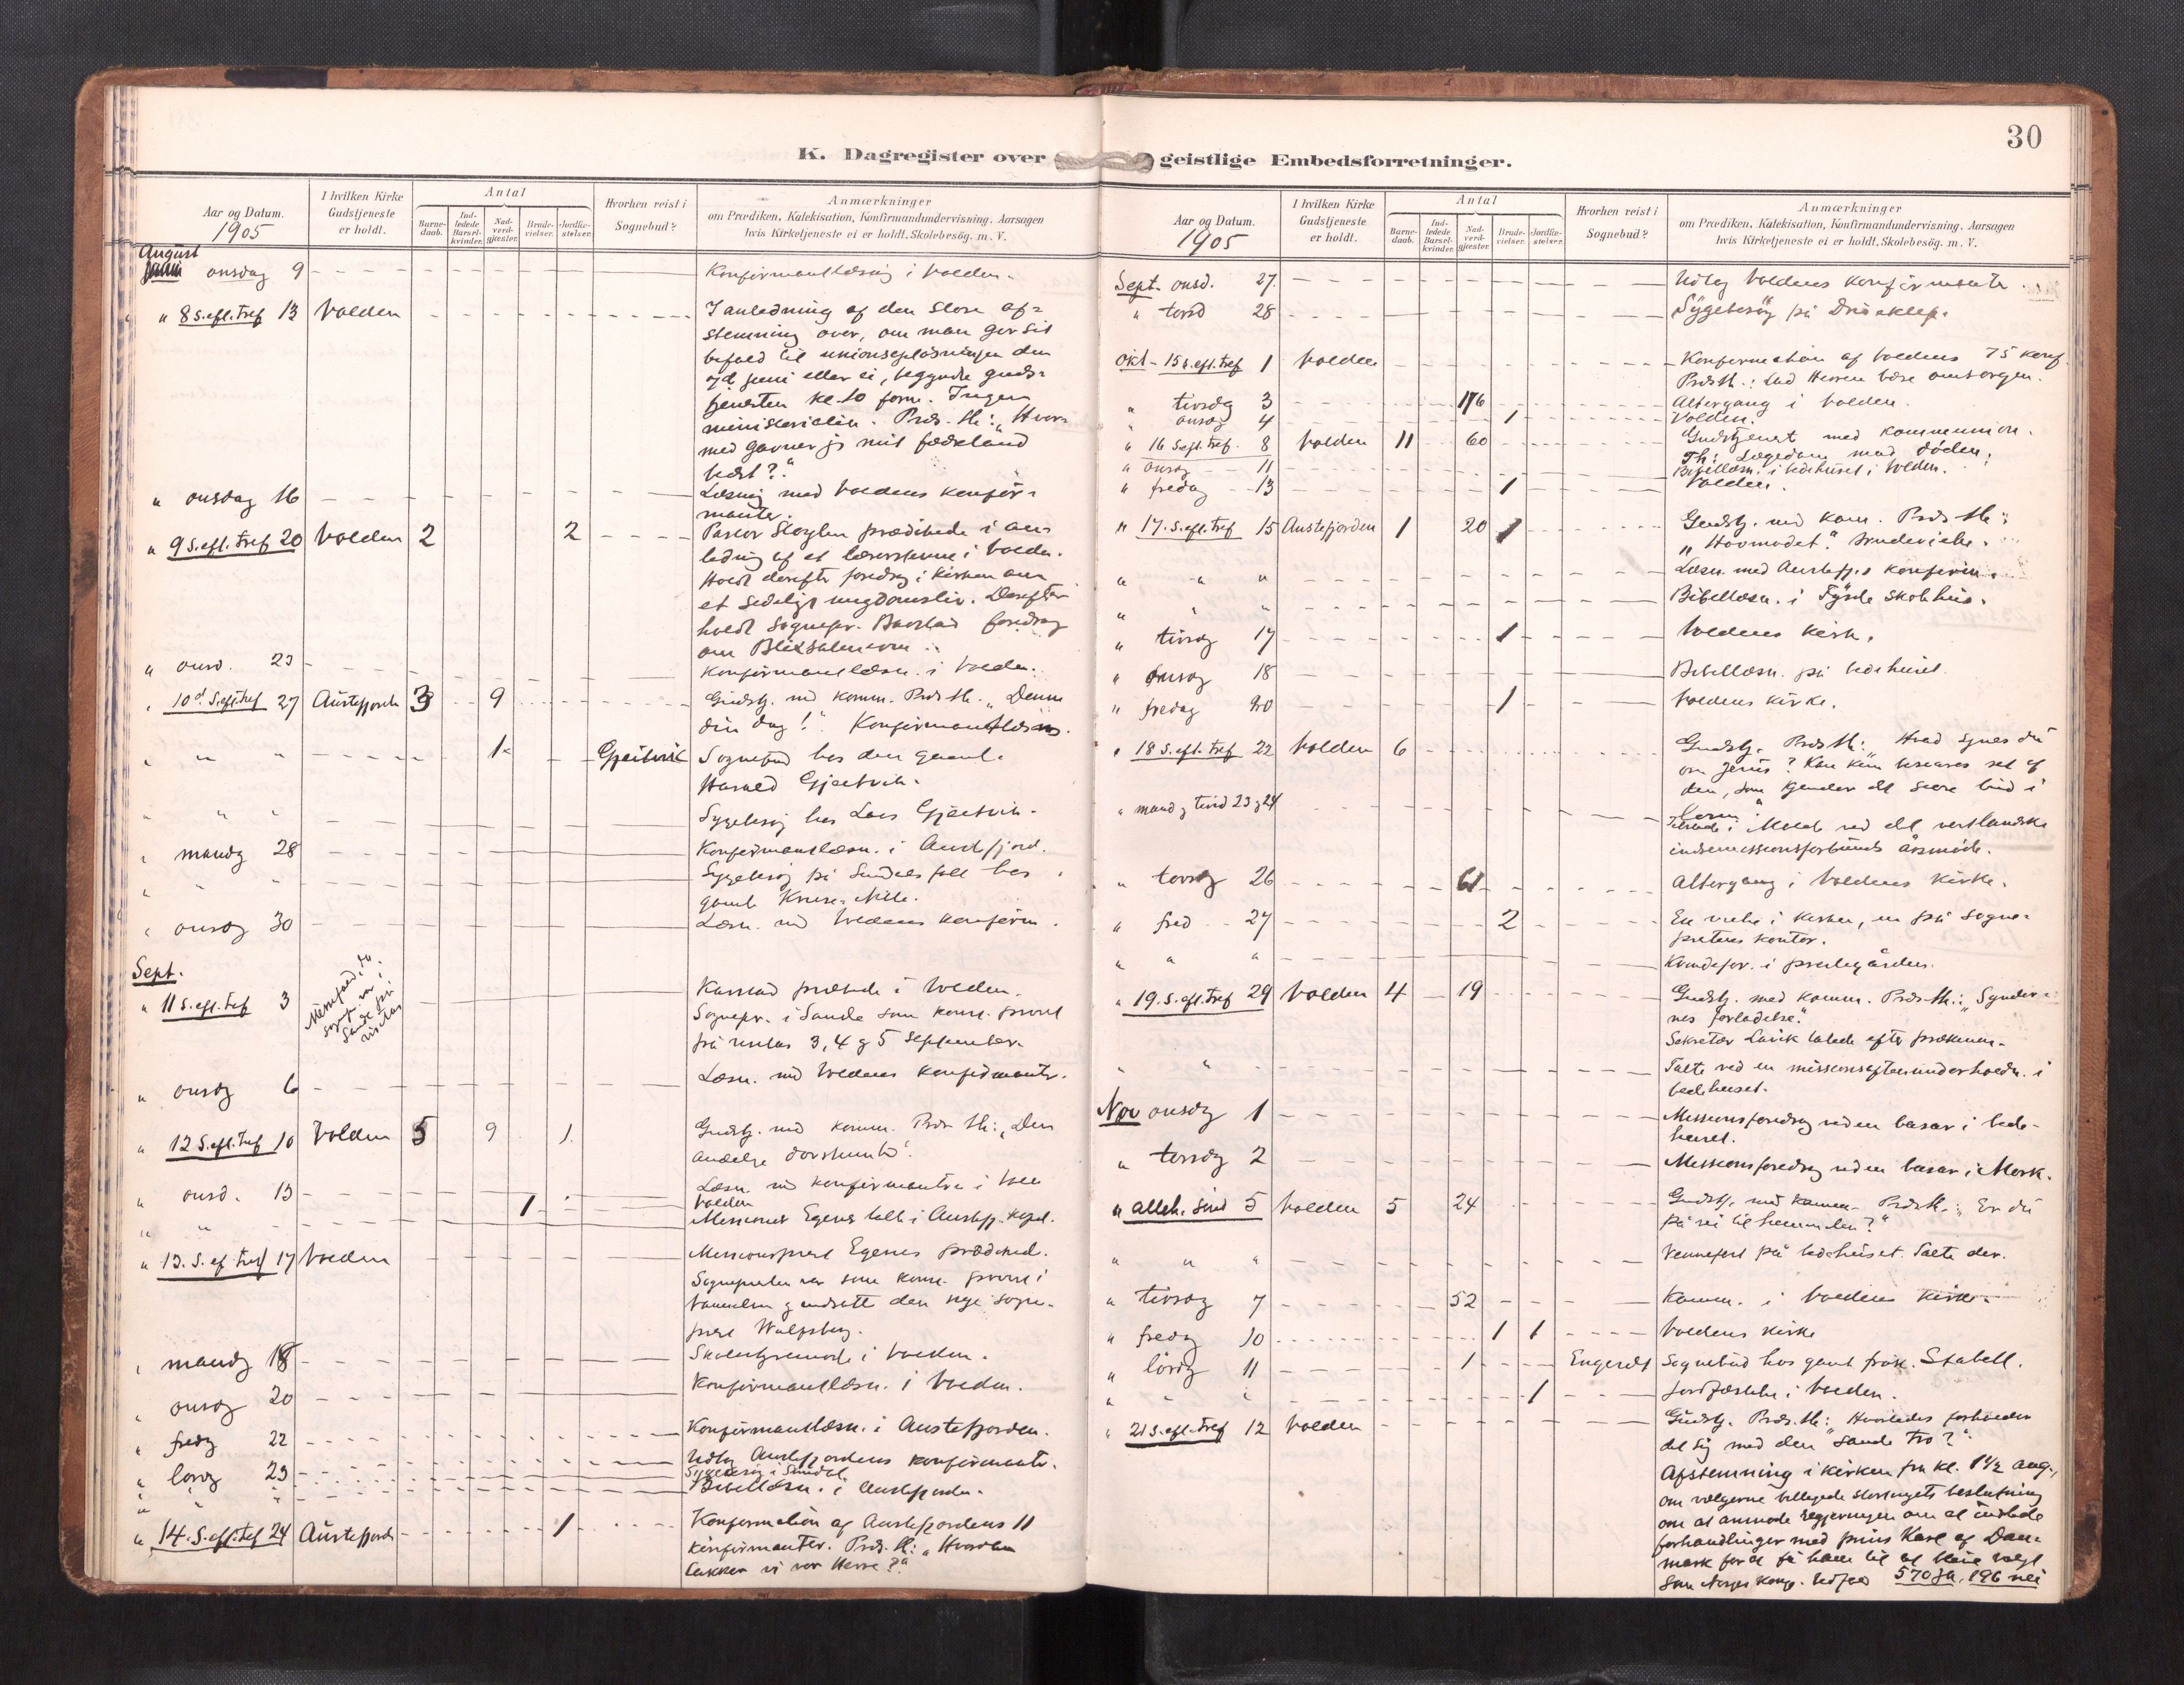 30
K. Dagregister over geistlige Embedsforretninger.
Aar og Datum.
1905
I hvilken Kirke
Gudstjeneste
er holdt.
Antal
Barne-
daab.
Ind-
ledede
Barsel-
kvinder.
Nad-
verd-
gjester.
Brude-
vielser.
Jordfæ-
stelser.
Hvorhen reist i
Sognebud?
Anmærkninger
om Prædiken, Katekisation, Konfirmandundervisning, Aarsagen
hvis Kirketjeneste ei er holdt, Skolebesög. m. V.
August
onsdag 9 Konfirmantlæsning i Volden.
" 8 S. eft. tref 13 Volden I anledning af den store af=
stemning over, om man gav sit
bifald til unionsopløsningen den
7d juni eller ei, begyndte guds=
tjenesten kl. 10 form. Ingen
ministerialia. Præd. th: "Hvor=
med gavner jeg mit fædreland
bedst?"
" onsdag 16 Læsning med Voldens konfir=
manter.
" 9 S. eft. tref 20 Volden 2 2 Pastor prædikede i an=
ledning af et i Volden.
Holdt derefter foredrag i kirken om
et sædeligt ungdomsliv. Derefter
holdt sognepr. foredrag
om
" onsd. 23 Konfirmantlæsn. i Volden.
" 10d S. eft. tref 27 Austefjorden 3 9 Gudstj. med komm. Præd. th. "Denne
din dag!" Konfirmantlæsn.
" " " 1 Gjeitvik Sognebud hos den gamle
Gjeitvik.
" " " Sygebesøg hos Lars Gjeitvik.
" mandag 28 Konfirmantlæsn. i Austefjord.
" " " Sygebesøg på hos
gamle
" onsdag 30 Læsn. med Voldens konfirm.
Sept.
" 11 S. eft. tref 3 prædikede i Volden.
Sognepr. i Sande som konst. provst
på visitas 3, 4 og 5 September.
" onsdag 6 Læsn. med Voldens konfirmanter.
" 12 S. eft. tref 10 Volden 5 9 1 Gudstj. med komm. Præd. th: "Den
åndelige døvstumhed".
" onsd. 13 Læsn. med konfirmanter i Volden
1 Volden
" " Missionær Egenes talte i Austefj. kapel.
" 13. S. ef tref 17 Volden Missionsprest Egenes prædiked.
Sognepresten var som konst. provst i
og indsatte den nye sogne-
prest
" mandag 18 Skolestyremøde i Volden.
" onsdag 20 Konfirmantlæsn. i Volden.
" fredag 22 Konfirmantlæsn. i Austefjorden.
" lørdag 23 Udtog Austefjordens konfirmanter.
Sygebesøg i Sundal.
" " " Bibellæsn. i Austefjorden.
" 14. S. eft. tref 24 Austefjorden 1 Konfirmation af Austefjordens 11
konfirmanter. Præd. th: "Hvordan
takker vi vor Herre?"
Aar og Datum.
1905
I hvilken Kirke
Gudstjeneste
er holdt.
Antal
Barne-
daab.
Ind-
ledede
Barsel-
kvinder.
Nad-
verd-
gjester.
Brude-
vielser.
Jordfæ-
stelser.
Hvorhen reist i
Sognebud?
Anmærkninger
om Prædiken, Katekisation, Konfirmandundervisning, Aarsagen
hvis Kirketjeneste ei er holdt, Skolebesög. m. V.
Sept. onsd. 27. Udtog Voldens konfirmanter.
" torsd 28 Sygebesøg på
Okt - 15 s. eft. tref 1 Volden Konfirmation af Voldens 75 konf.
Præd th.: Lad Herren bære omsorgen.
" tirsdag 3 176 Altergang i Volden.
" onsdag 4 1 Volden.
" 16 S eft. tref. 8 Volden 11 60 Gudstjenest med kommunion.
Th: Lægedom mod døden.
" onsdag 11 Bibellæsn. i bedehuset i Volden.
" fredag 13 1 Volden.
" 17. S. eft. tref 15 Austefjorden 1 20 1 Gudstj. med kom. Præd th:
"Hovmodet." Brudevielse.
" " " Læsn. med Austefj.s konfirm.
" " " Bibellæsn. i skolehus.
" tirsdag 17 1 Voldens kirk.
" onsdag 18 Bibellæsn. på bedehuset.
" fredag 20 1 Voldens kirke.
" 18 S. eft. tref 22 Volden 6 Gudstj. Præd. th: "Hvad synes du
om Jesus? Kan kun besvares ret af
den, som kjender det store bud i
loven."
" mand og tirsd 23 og 24 Talte i Molde ved det vestlandske
indremissionsforbunds årsmøde.
" torsdag 26 61 Altergang i Voldens kirke.
" fred 27 2 En vielse i kirken, en på sogne-
prestens kontor.
" " " Kvindefor. i prestegården.
" 19. S. eft. tref 29 Volden 4 19 Gudstj. med komm. Præd. th.: "Synder-
nes forladelse."
Sekretær Lavik talede efter prækenen.
" " Talte ved en missionsaftenunderholdn. i
bedehuset.
Nov onsdag 1 Missionsforedrag ved en basar i bede-
huset.
" torsdag 2 Missionsforedrag ved en basar i Mork.
" alleh. sønd 5 Volden 5 24 Gudstj. med komm. Præd. th.: "Er du
på vei til himmelen?"
" " " Vennefest på bedehuset. Talte der.
" tirsdag 7 52 Komm. i Voldens kirke.
" fredag 10 1 1 Voldens kirke
" lørdag 11 1 Engeset Sognebud hos gamle frøk. Stabell.
" " " 1 Jordfæstelse i Volden.
" 21 S. eft. tref 12 Volden Gudstj. Præd. th: Hvorledes forholder
det sig med den "sande tro?".
Afstemning i kirken fra kl. 1 1/2 ang.,
om vælgerne billigede stortingets beslutning
om at anmode regjeringen om at indlede
forhandlinger med prins Karl af Dan=
mark for at få ham til at blive valgt
som Norges konge. Udfald 570 ja, 196 nei